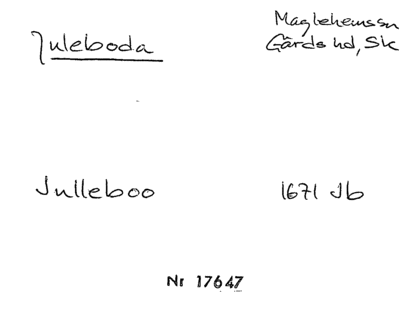 Juleboda
Maglehemssn
Gärds hd, Sk
Julleboo
1671 Jb
Nr 17647